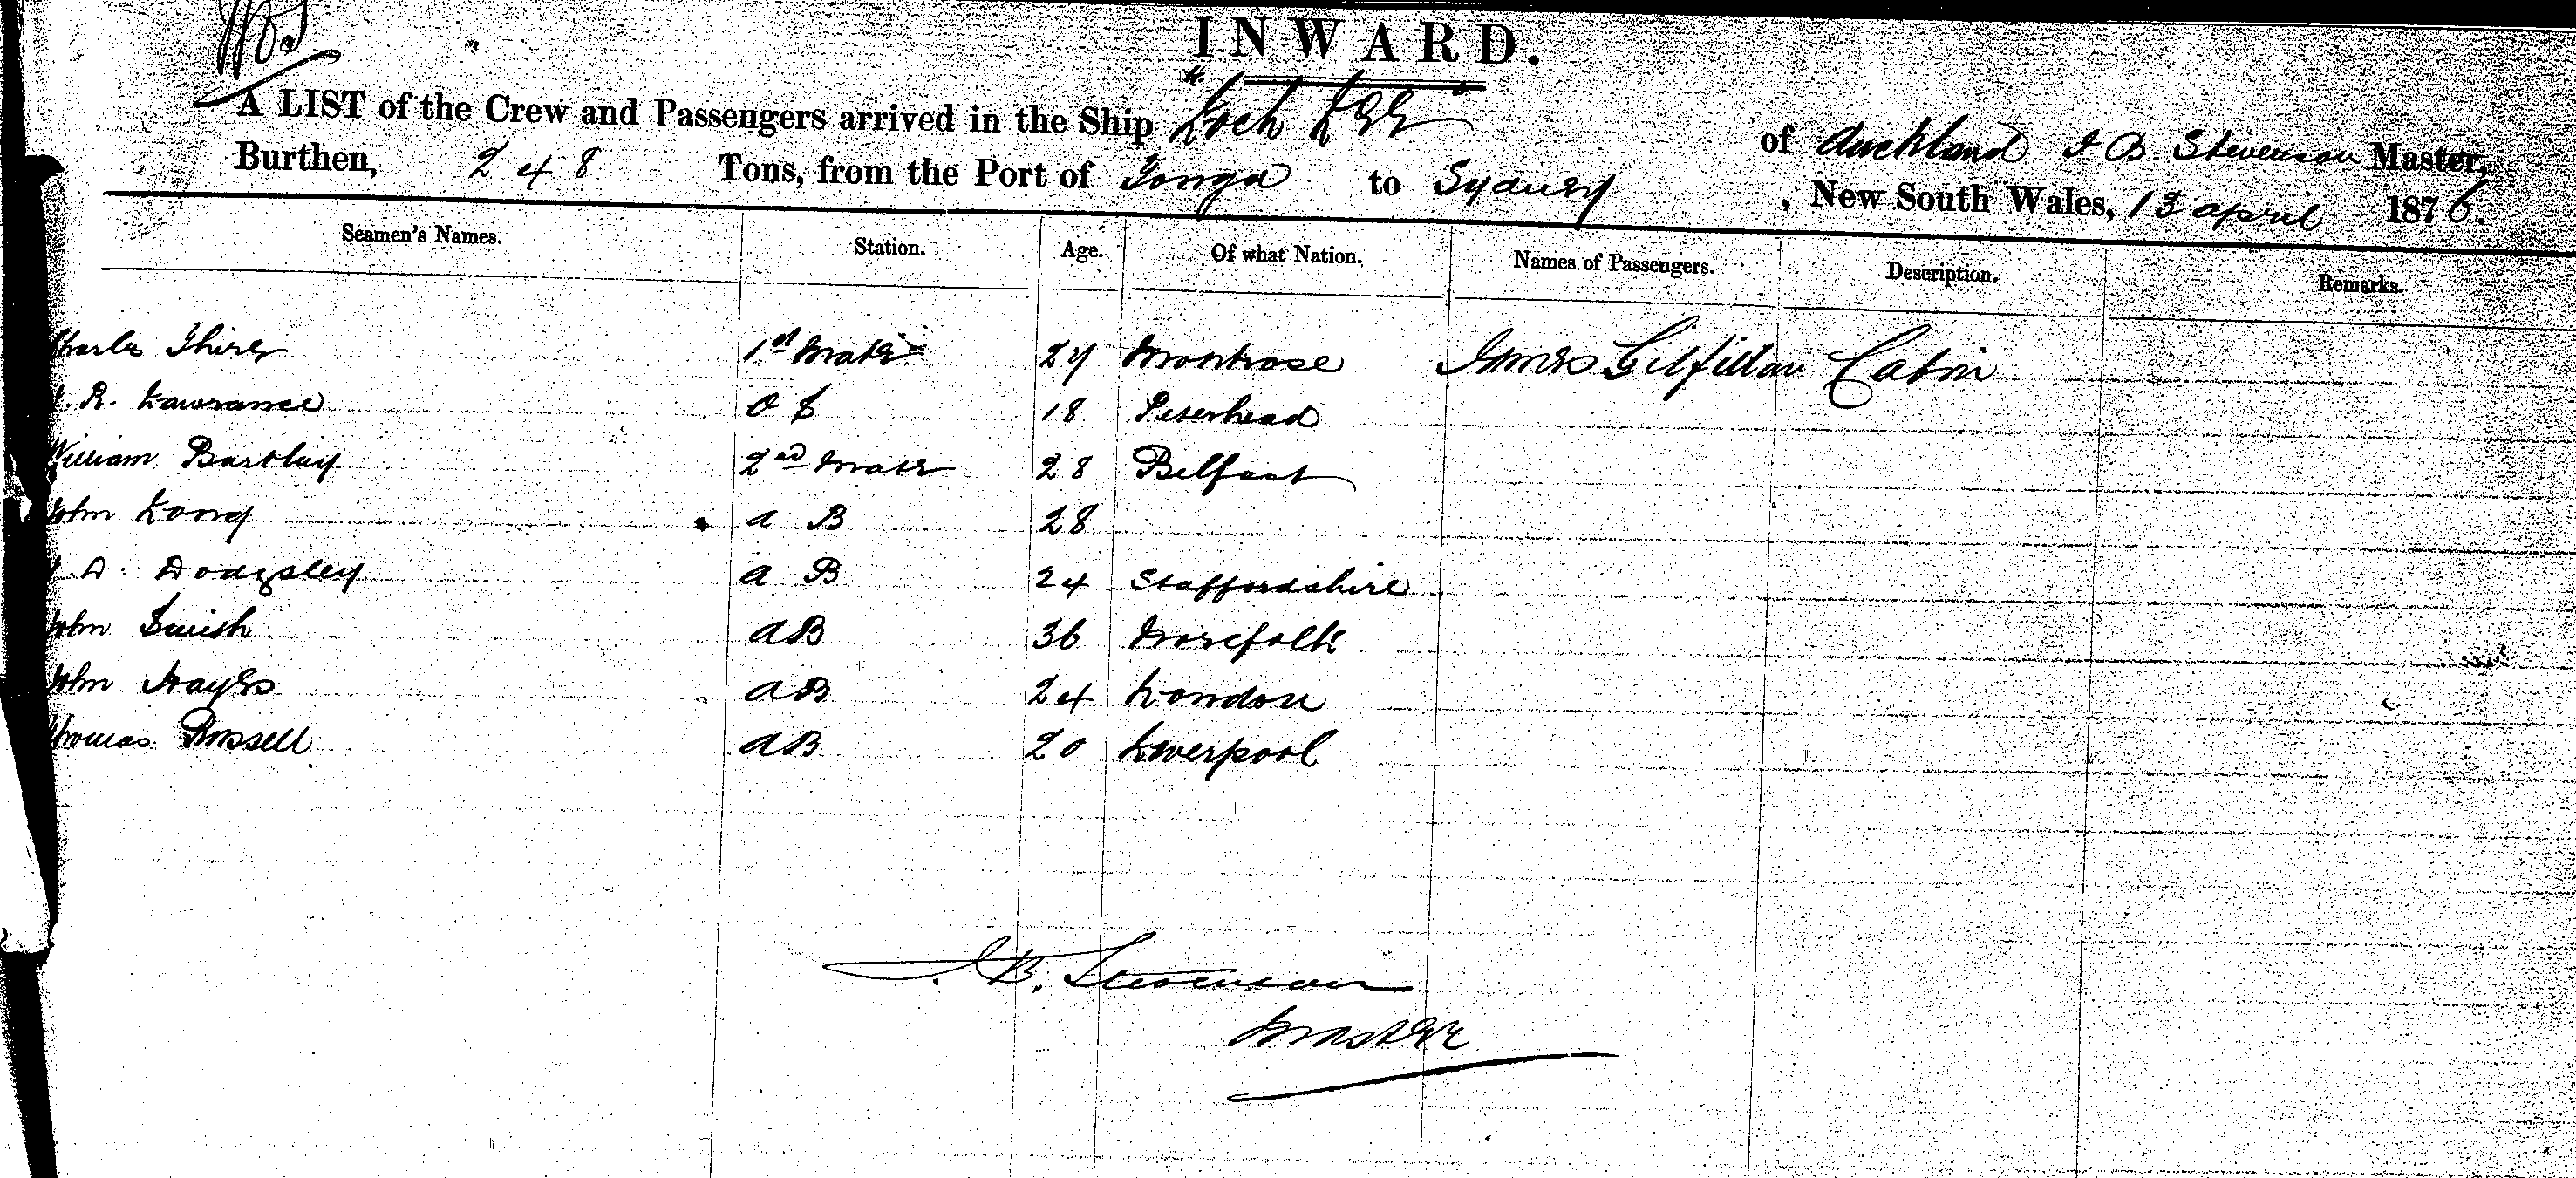 INWARD.
A LIST of the Crew and Passengers arrived in the Ship "Loch Lee" of Auckland J B. Stevenson Master,
Burthen, 248 Tons, from the Port of Tonga to Sydney, New South Wales, 13 april 1876.
Seamen's Names. Station. Age. Of what Nation. Names of Passengers. Description. Remarks.
Charles 1st Mate 24 Montrose James Gilfillan Cabin
R. Lawrance O S 18 Peterhead
William Barclay 2nd Mate 28 Belfast
John Long a B 28
D. Dodgsley a B 24 Staffordshire
John Smith a B 36 Norefolk
John Hayes a B 24 London
Thomas Rossell a B 20 Liverpool
J. B. Stevenson
Master